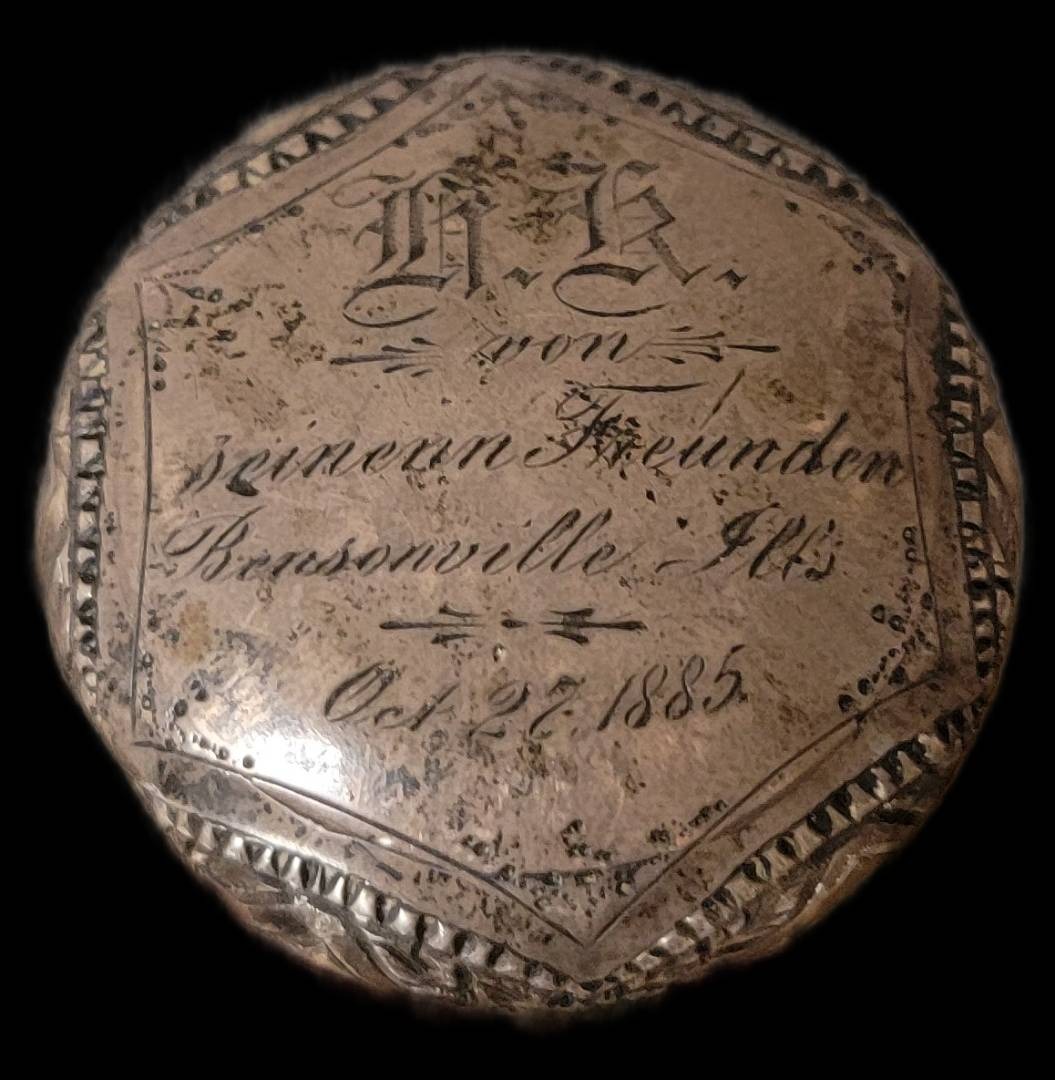 H. K.
von
seinenn Freunden
Bensonville Ills
Oct. 27. 1885.